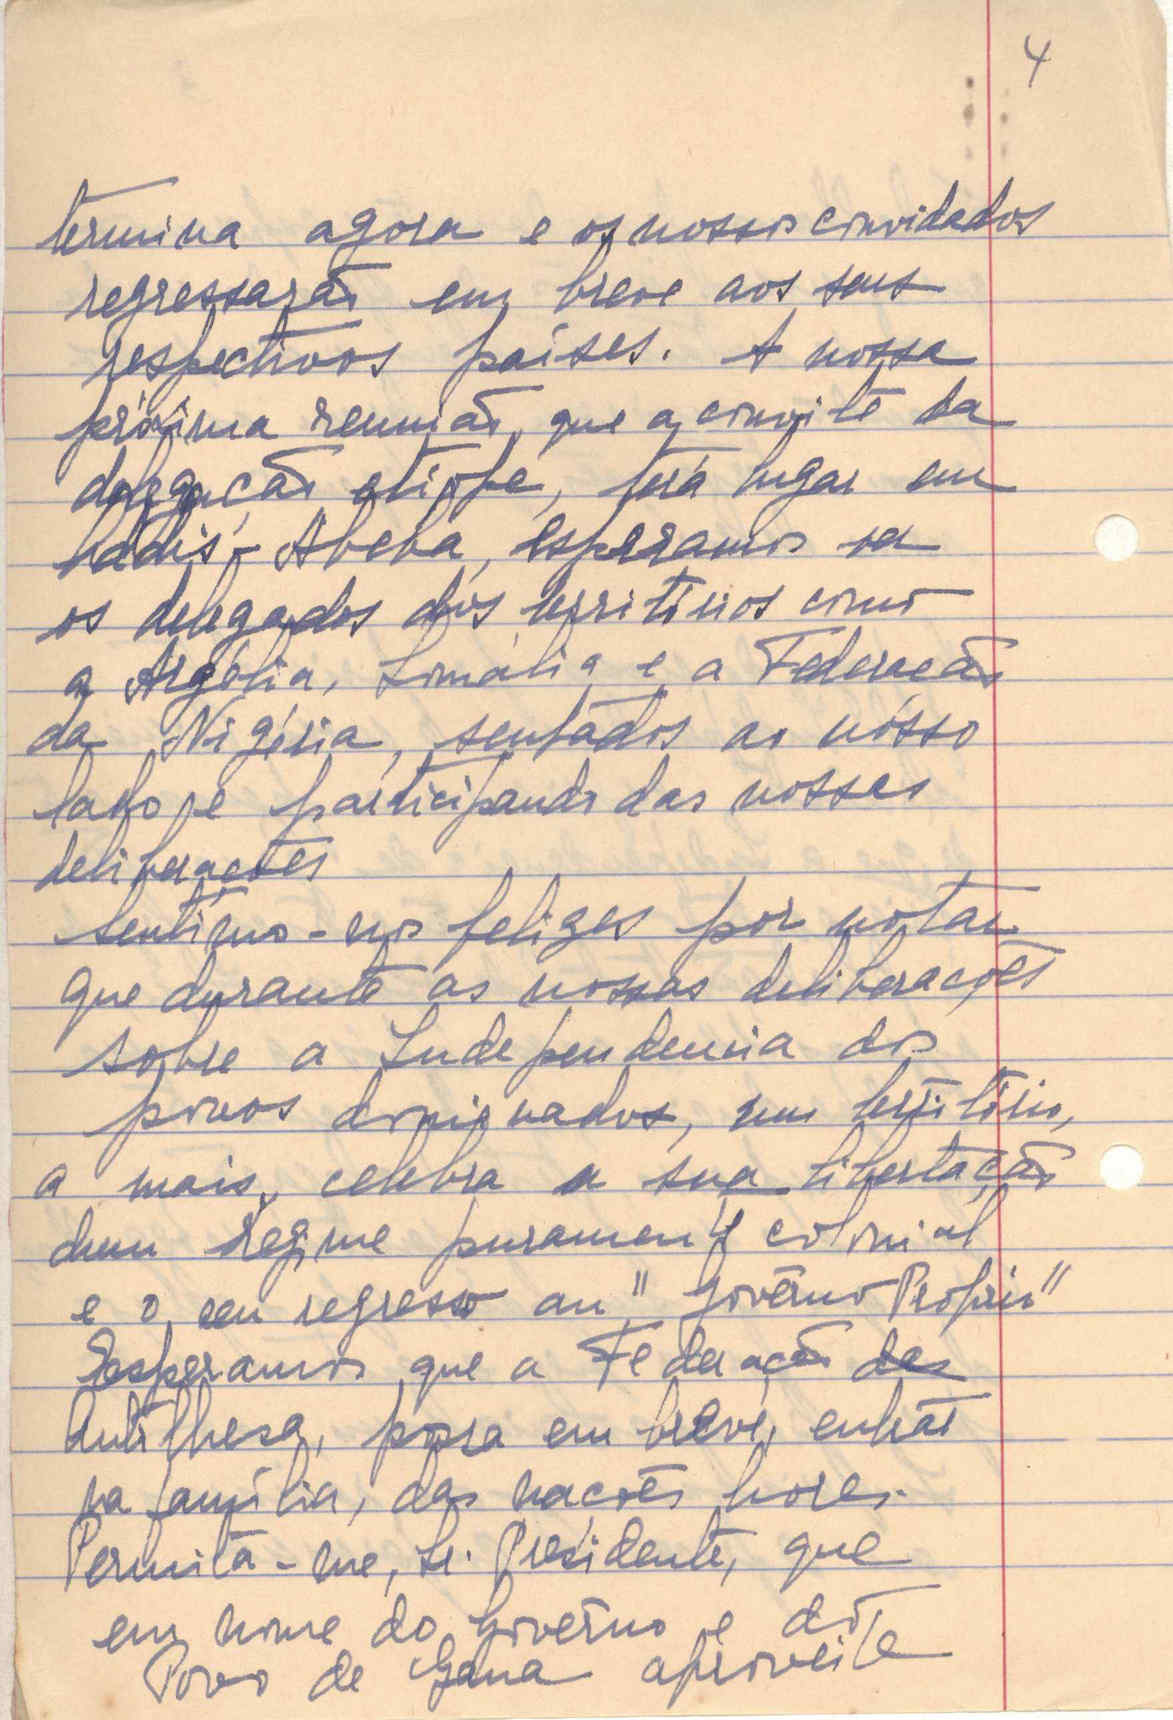 4
termina agora e os nossos convidados
regressarão em breve aos seus
respectivos países. A nossa
próxima reunião, que a, convite da
delegação etiope, terá lugar em
Addis-Abeba, esperamos ver
os delegados dos territórios como
a Argélia, Somália e a Federação
da Nigéria, sentados ao nosso
lado e participando das nossas
deliberações
Sentimo-nos felizes por notar
que durante as nossas deliberações
sobre a Independencia dos
povos dominados, um território,
a mais, celebra a sua libertação
dum regime puramente colonial
e o seu regresso au "Govêrno Próprio"
Esperamos que a Federação das
Antilhesa, possa em breve, entrar
na família, das nações livres.
Permita-me, Sr. Presidente, que
em nome do Govêrno e do
Povo de Gana aproveite